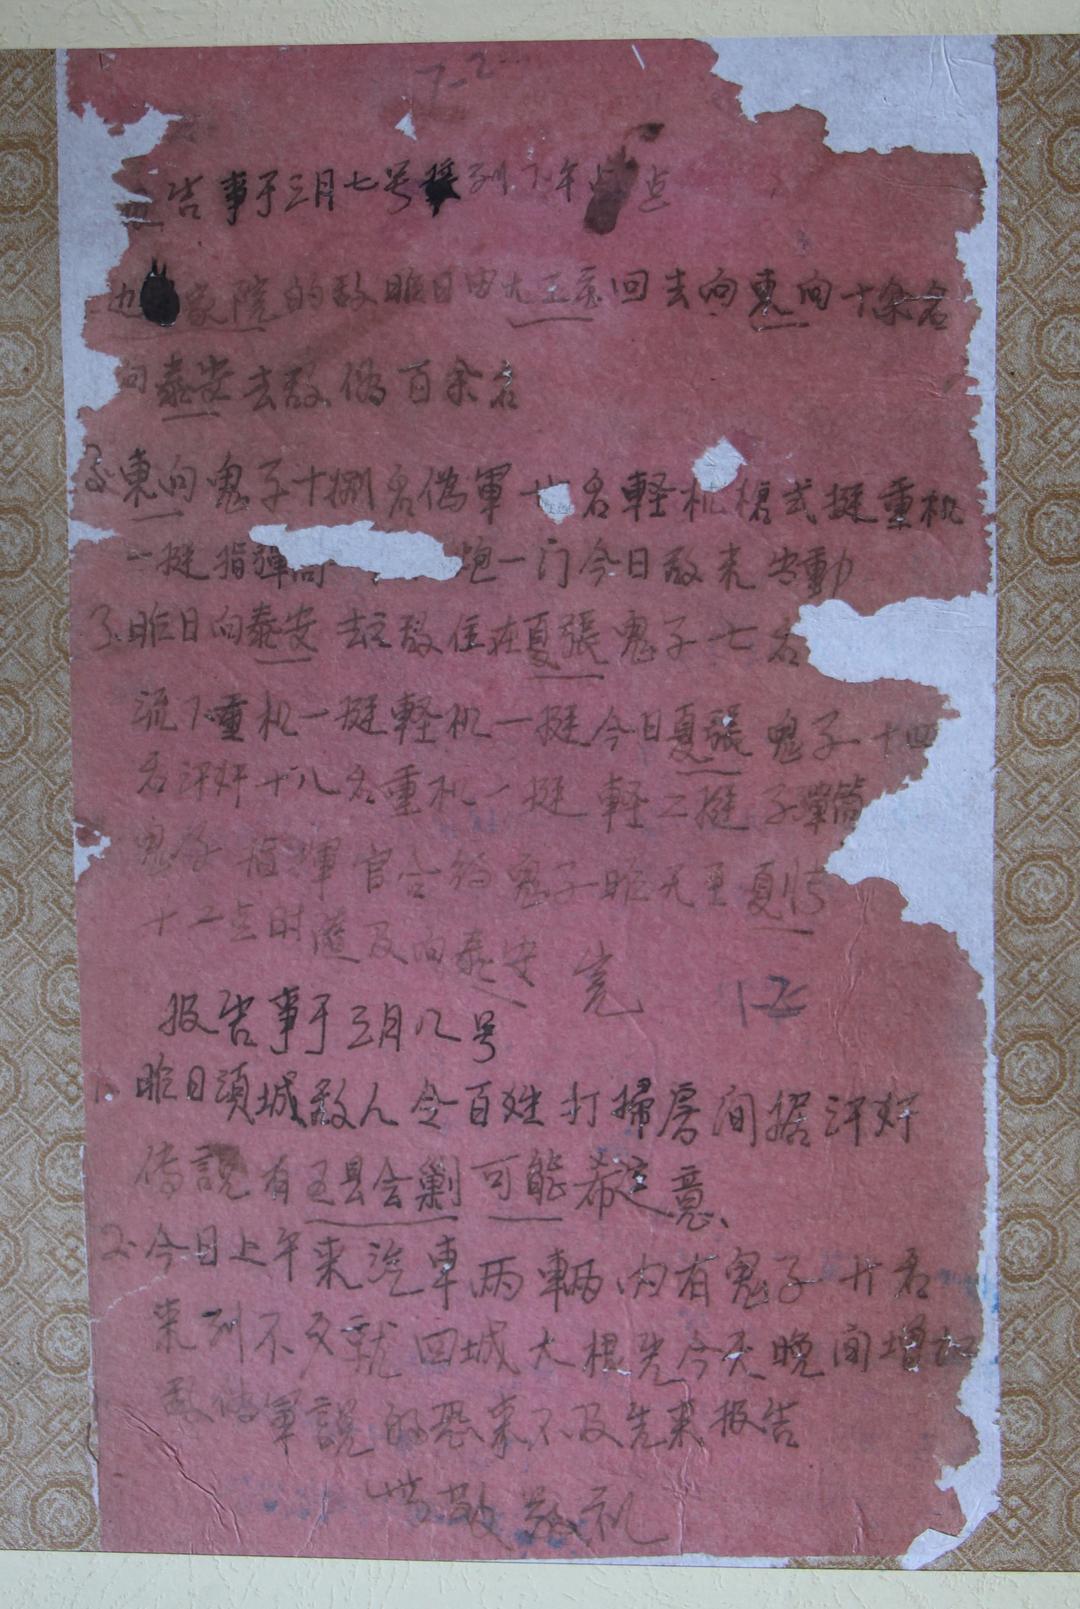 告事于三月七号 列下午 点
边 家院的敌昨日由大王庄回去向东向十余名
向泰安去敌伪百余名
2.東向鬼子十捌名伪軍 名軽机槍式挺重机
一挺指弹筒 炮一门今日敌未出動
3.昨日向泰安去之敌住在夏張鬼子七名
流下重机一挺軽机一挺今日夏張鬼子十四
名汗奸十八名重机一挺軽二挺子彈筒
鬼子指揮官合約鬼子昨天至夏张
十二点时 及向泰安 完
12
报告事于三月八号
1.昨日頭城敌人令百姓打掃房间据汗奸
传説有五县会剿可能希注意、
2.今日上午来汽車两輛内有鬼子廿名
来到不久就回城大概是今天晚间增加
敌伪軍説的恐来不及先来报告
此致敬礼